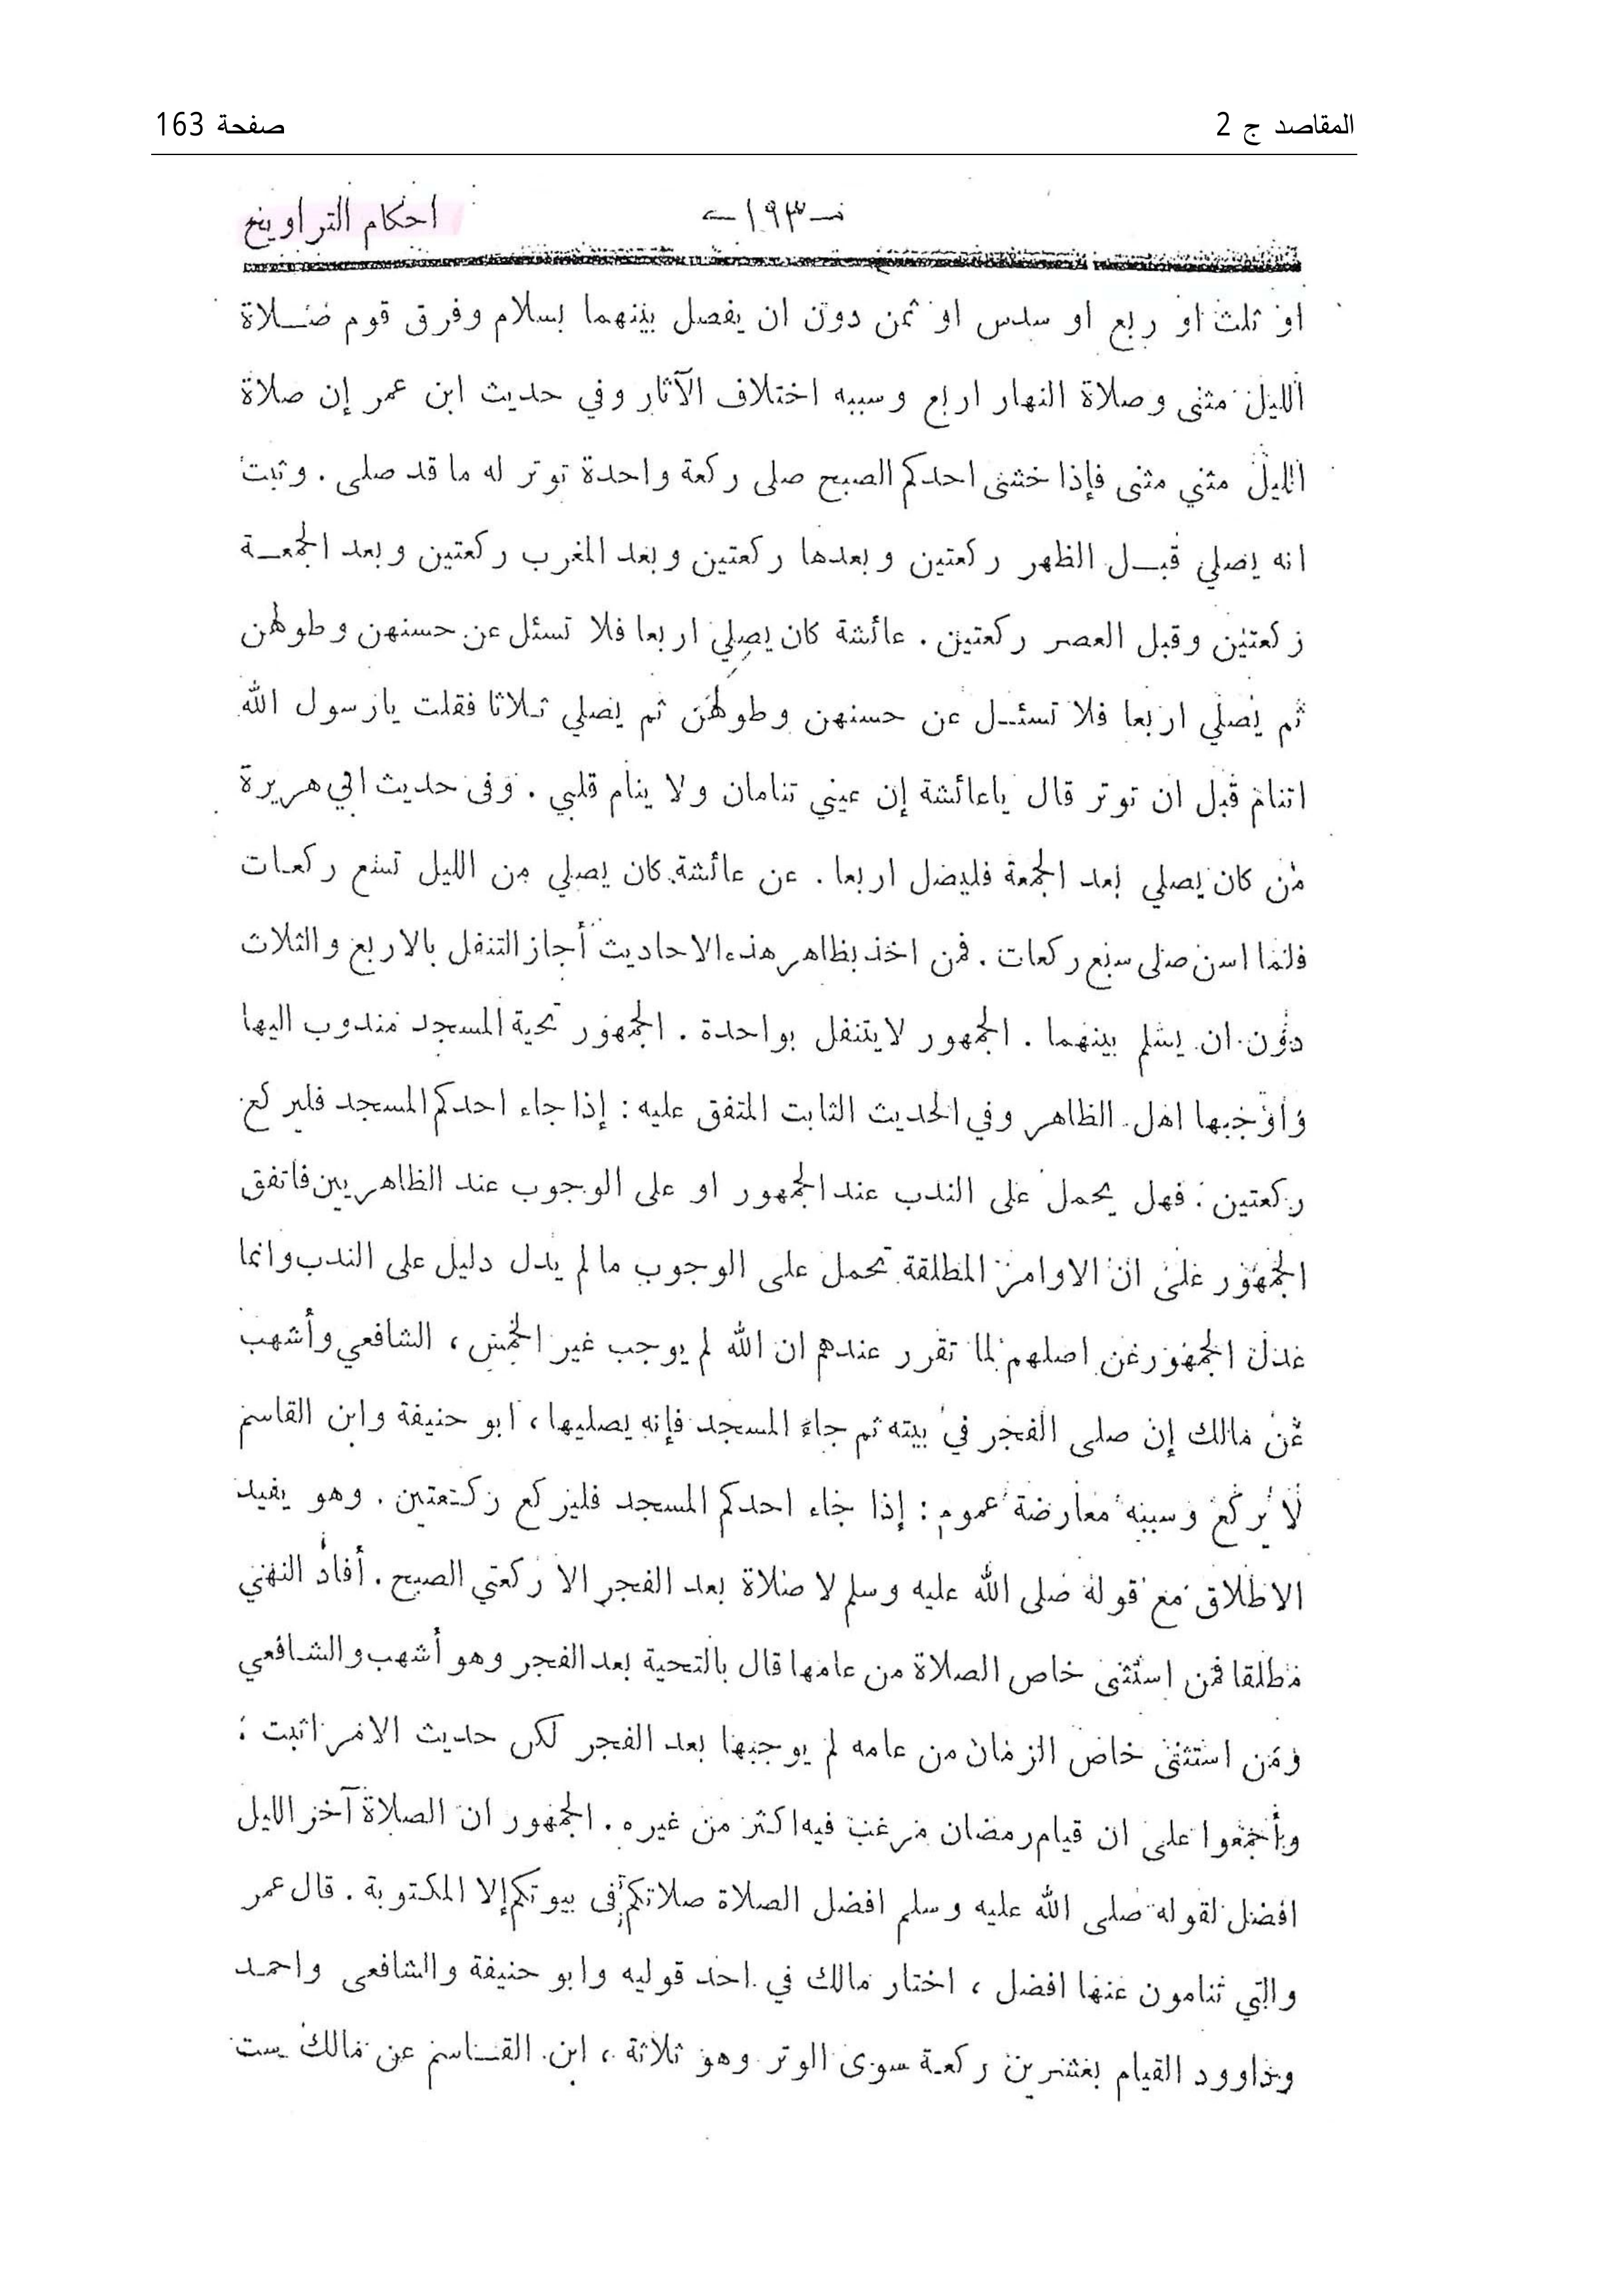 المقاصد ج 2
صفحة 163
ـ ١٩٣ ـ
احكام التراويح
او ثلث او ربع او سدس او ثمن دون ان يفصل بينهما بسلام وفرق قوم صلاة
الليل مثنى وصلاة النهار اربع وسببه اختلاف الآثار وفي حديث ابن عمر إن صلاة
الليل مثني مثنى فإذا خشى احدكم الصبح صلى ركعة واحدة توتر له ما قد صلى . وثبت
انه يصلي قبل الظهر ركعتين وبعدها ركعتين وبعد المغرب ركعتين وبعد الجمعة
ركعتين وقبل العصر ركعتين . عائشة كان يصلي اربعا فلا تسئل عن حسنهن وطولهن
ثم يصلي اربعا فلا تسئل عن حسنهن وطولهن ثم يصلي ثلاثا فقلت يارسول الله
اتنام قبل ان توتر قال ياعائشة إن عيني تنامان ولا ينام قلبي . وفى حديث ابي هريرة
من كان يصلي بعد الجمعة فليصل اربعا . عن عائشة كان يصلي من الليل تسع ركعات
فلما اسن صلى سبع ركعات . فمن اخذ بظاهر هذه الاحاديث أجاز التنفل بالاربع والثلاث
دون ان يسلم بينهما . الجمهور لايتنفل بواحدة . الجمهور تحية المسجد مندوب اليها
وأوجبها اهل الظاهر وفي الحديث الثابت المتفق عليه : إذا جاء احدكم المسجد فليركع
ركعتين : فهل يحمل على الندب عند الجمهور او على الوجوب عند الظاهريين فاتفق
الجمهور على ان الاوامر المطلقة تحمل على الوجوب مالم يدل دليل على الندب وانما
عدل الجمهور عن اصلهم لما تقرر عندهم ان الله لم يوجب غير الخمس ، الشافعي وأشهب
عن مالك إن صلى الفجر في بيته ثم جاء المسجد فإنه يصليها ، ابو حنيفة وابن القاسم
لا يركع وسببه معارضة عموم : إذا جاء احدكم المسجد فليركع ركعتين . وهو يفيد
الاطلاق مع قوله صلى الله عليه وسلم لا صلاة بعد الفجر الا ركعتي الصبح . أفاد النهي
مطلقا فمن استثنى خاص الصلاة من عامها قال بالتحية بعد الفجر وهو أشهب والشافعي
ومن استثنى خاص الزمان من عامه لم يوجبها بعد الفجر لكن حديث الامر اثبت :
وأجمعوا على ان قيام رمضان مرغب فيه اكثر من غيره . الجمهور ان الصلاة آخر الليل
افضل لقوله صلى الله عليه وسلم افضل الصلاة صلاتكم في بيوتكم إلا المكتوبة . قال عمر
والتي تنامون عنها افضل ، اختار مالك في احد قوليه وابو حنيفة والشافعى واحمد
وداوود القيام بعشرين ركعة سوى الوتر وهو ثلاثة ، ابن القاسم عن مالك ست